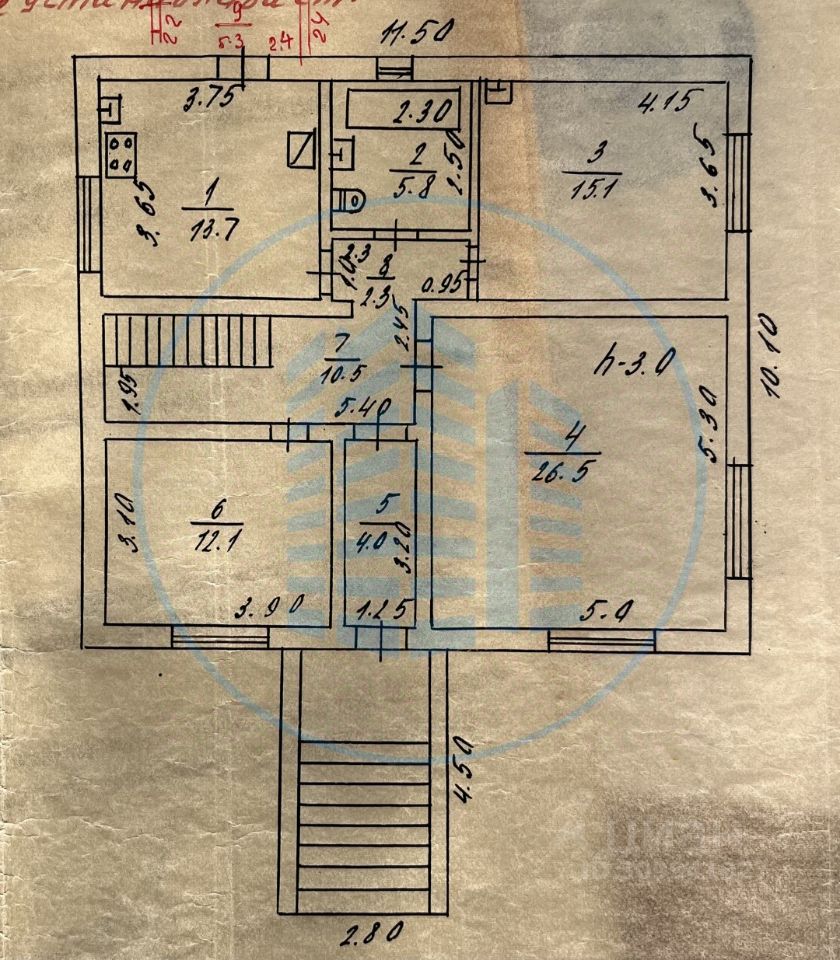 9
5.3
2.4
22
24
11.50
3.75
2.30
4.15
1
13.7
3.65
2
5.8
2.50
3
15.1
3.65
2.3
8
2.3
1.0
0.95
7
10.5
2.45
1.95
5.40
h-3.0
4
26.5
5.30
10.10
6
12.1
3.10
3.90
5
4.0
3.20
1.25
5.0
4.50
2.80